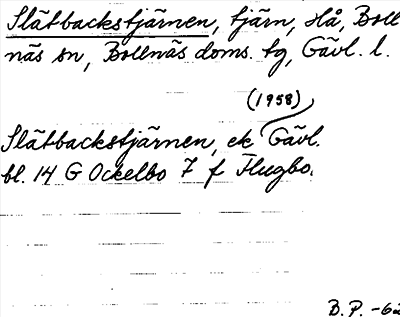 Slätbackstjärnen, tjärn, Hå, Boll
näs sn, Bollnäs doms. tg, Gävl. l.
(1958)
Slätbackstjärnen, ek Gävl.
bl. 14 G Ockelbo 7 f Flugbo.
B.P. -62